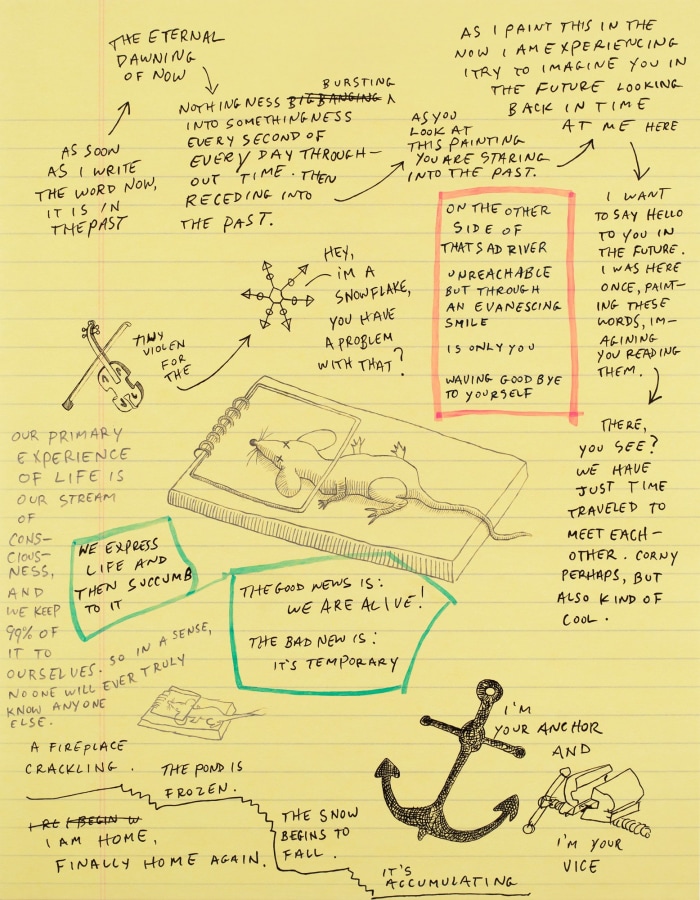 THE ETERNAL
DAWNING
OF NOW
AS SOON
AS I WRITE
THE WORD NOW,
IT IS IN
THE PAST
BURSTING
NOTHINGNESS BIG BANGING ^
INTO SOMETHINGNESS
EVERY SECOND OF
EVERY DAY THROUGH-
OUT TIME. THEN
RECEDING INTO
THE PAST.
AS YOU
LOOK AT
THIS PAINTING
YOU ARE STARING
INTO THE PAST.
AS I PAINT THIS IN THE
NOW I AM EXPERIENCING
I TRY TO IMAGINE YOU IN
THE FUTURE LOOKING
BACK IN TIME
AT ME HERE
I WANT
TO SAY HELLO
TO YOU IN
THE FUTURE.
I WAS HERE
ONCE, PAINT-
ING THESE
WORDS, IM-
AGINING
YOU READING
THEM.
THERE,
YOU SEE?
WE HAVE
JUST TIME
TRAVELED TO
MEET EACH-
OTHER. CORNY
PERHAPS, BUT
ALSO KIND OF
COOL.
ON THE OTHER
SIDE OF
THAT SAD RIVER
UNREACHABLE
BUT THROUGH
AN EVANESCING
SMILE
IS ONLY YOU
WAVING GOODBYE
TO YOURSELF
HEY,
I'M A
SNOWFLAKE,
YOU HAVE
A PROBLEM
WITH THAT?
TINY
VIOLEN
FOR
THE
OUR PRIMARY
EXPERIENCE
OF LIFE IS
OUR STREAM
OF
CONS-
CIOUS-
NESS,
AND
WE KEEP
99% OF
IT TO
OURSELVES. SO IN A SENSE,
NO ONE WILL EVER TRULY
KNOW ANYONE
ELSE.
WE EXPRESS
LIFE AND
THEN SUCCUMB
TO IT
THE GOOD NEWS IS:
WE ARE ALIVE!
THE BAD NEW IS:
IT'S TEMPORARY
A FIREPLACE
CRACKLING.
THE POND IS
FROZEN.
I BEGIN W
I AM HOME,
FINALLY HOME AGAIN.
THE SNOW
BEGINS TO
FALL.
IT'S
ACCUMULATING
I'M
YOUR ANCHOR
AND
I'M YOUR
VICE